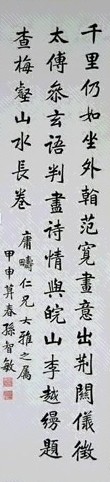 千里仍如坐外翰范寬畫意出荆關儀徵
太傅叅玄語判盡詩情與皖山李越縵題
查梅壑山水長卷
庸疇仁兄大雅之屬
甲申莫春孫智敏